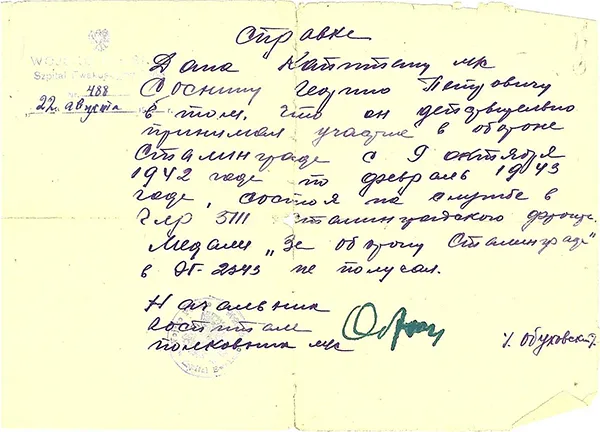 Справка
Szpital Ewakuac
Дана Капитану мс
488
Соснину Георгию Петровичу
22. августа
в том, что он действительно
принимал участие в обороне
Сталинграда с 9 октября
1942 года по февраль 1943
года, состоя на службе в
Сталинградского фронта.
Медали „За оборону Сталинграда"
в ЭГ-2343 не получал.
Начальник
госпиталя
полковник мс
/Обуховский/.